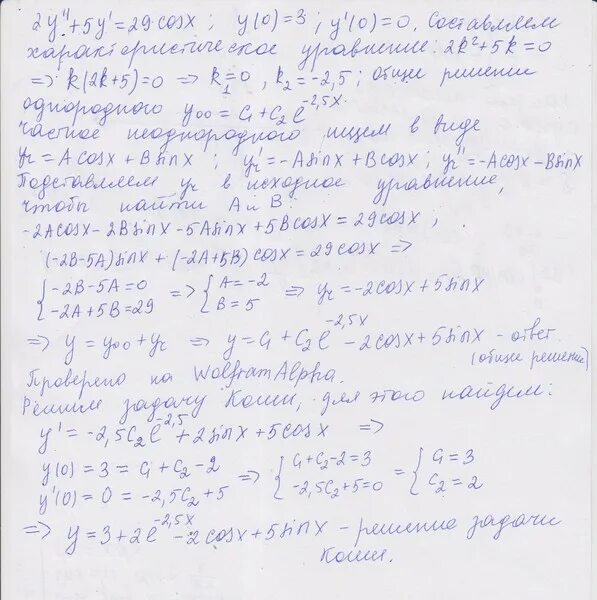 2y'' + 5y' = 29cosx ; y(0) = 3 ; y'(0) = 0. Составляем
характеристическое уравнение: 2k² + 5k = 0
=> k(2k+5) = 0 => k₁ = 0 , k₂ = -2,5 ; общее решение
однородного yоо = C₁ + C₂e^-2,5x.
частное неоднородного ищем в виде
yч = Acosx + Bsinx ; yч' = -Asinx + Bcosx ; yч'' = -Acosx - Bsinx
Подставляем yч в исходное уравнение,
чтобы найти A и B:
-2Acosx - 2Bsinx - 5Asinx + 5Bcosx = 29cosx ;
(-2B-5A)sinx + (-2A+5B)cosx = 29cosx =>
{ -2B-5A=0 => { A=-2 => yч = -2cosx + 5sinx
-2A+5B=29 B=5
=> y = yоо + yч => y = C₁ + C₂e^-2,5x - 2cosx + 5sinx - ответ
(общее решение)
Проверено на WolframAlpha.
Решим задачу Коши, для этого найдем:
y' = -2,5C₂e^-2,5 + 2sinx + 5cosx =>
y(0) = 3 = C₁ + C₂ - 2 => { C₁+C₂-2=3 = { C₁=3
y'(0) = 0 = -2,5C₂ + 5 -2,5C₂+5=0 C₂=2
=> y = 3 + 2e^-2,5x - 2cosx + 5sinx - решение задачи
Коши.